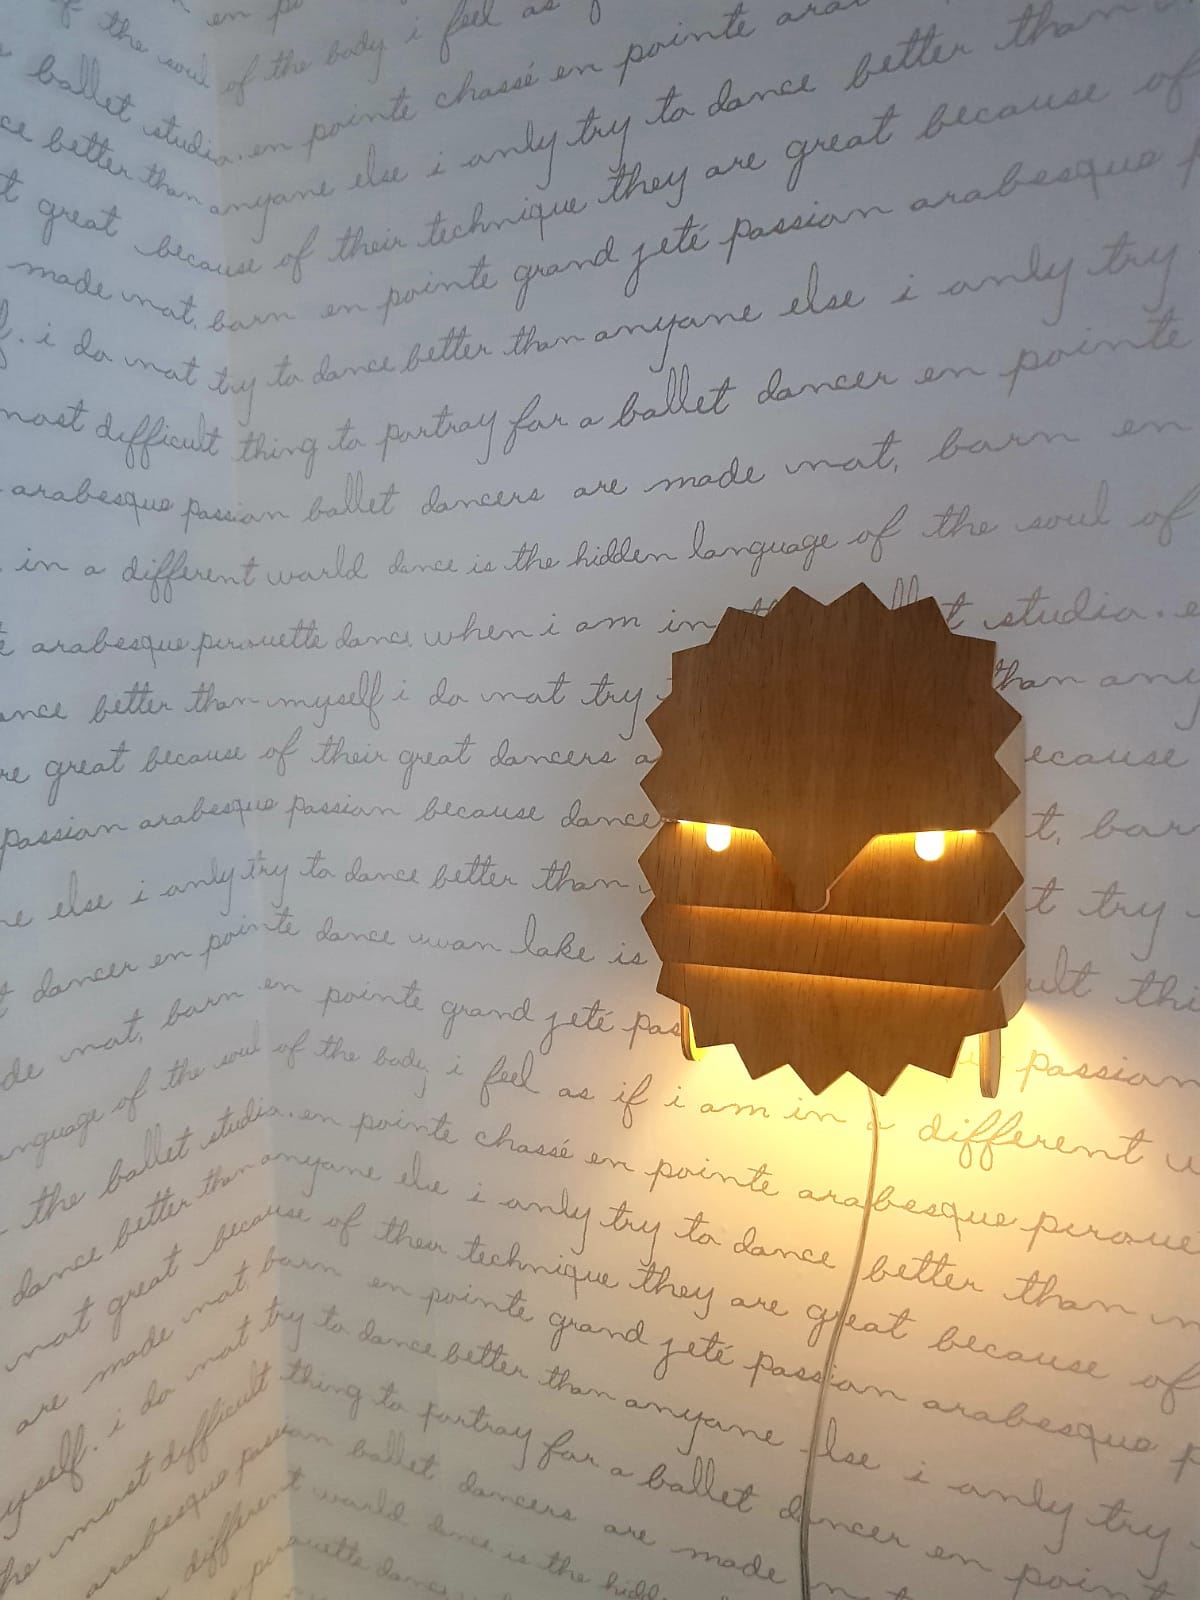 en
of the soul of the body i feel as
ballet studio. en pointe chassé en pointe
better than anyone else i only try to dance better than
great because of their technique they are great because of
made not, born en pointe grand jeté passion arabesque
. i do not try to dance better than anyone else i only try
most difficult thing to portray for a ballet dancer en pointe
arabesque passion ballet dancers are made not, born en
in a different world dance is the hidden language of the soul of
arabesque pirouette dance when i am in studio.
better than myself i do not try than
great because of their great dancers because
passion arabesque passion because
else i only try to dance better than try
dancer en pointe dance swan lake is
not, born en pointe grand jeté passion
of the soul of the body i feel as if i am in a different
the ballet studio. en pointe chassé en pointe arabesque
dance better than anyone else i only try to dance better than
not great because of their technique they are great because of
are made not, born en pointe grand jeté passion arabesque
i do not try to dance better than anyone else i only try
most difficult thing to portray for a ballet dancer en pointe
arabesque passion ballet dancers are made
different world dance is the
pirouette dance